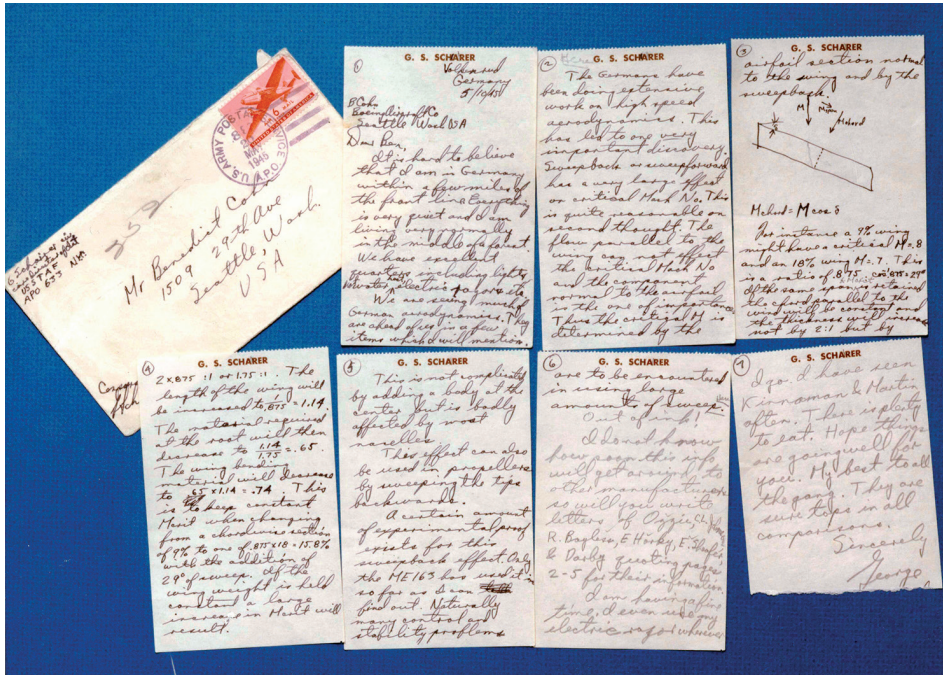 U.S. ARMY POSTAL SERVICE
A.P.O.
MAY
1945
UNITED STATES OF AMERICA
G Schairer
USSTAF
APO 633 NYC
Mr Benedict Cohn
1509 29th Ave
Seattle, Wash.
USA
①
G. S. SCHARER
Volkenrode
Germany
5/10/45
B Cohn
Boeing Aircraft Co
Seattle Wash USA
Dear Ben,
It is hard to believe
that I am in Germany
within a few miles of
the front line. Everything
is very quiet and I am
living very normally
in the middle of a forest.
We have excellent
quarters including lights
hot water, electric razors, etc
We are seeing much of
German aerodynamics. They
are ahead of us in a few
items which I will mention.
②
G. S. SCHARER
The Germans have
been doing extensive
work on high speed
aerodynamics. This
has led to one very
important discovery.
Sweepback or sweepforward
has a very large effect
on critical Mach No. This
is quite reasonable on
second thought. The
flow parallel to the
wing can not affect
the critical Mach No
and the component
normal to the airfoil
is the one of importance.
Thus the critical M is
determined by the
③
G. S. SCHARER
airfoil section normal
to the wing and by the
sweepback.
M
M chord
M chord = M cos δ
For instance a 9% wing
might have a critical M=.8
and an 18% wing M=.7. This
is a ratio of .875. cos⁻¹ .875 = 29°
If the same span is retained
the chord parallel to the
wind will be constant and
the thickness will increase
not by 2:1 but by
④
G. S. SCHARER
2 x .875 :1 or 1.75 :1. The
length of the wing will
be increased to 1/.875 = 1.14.
The material required
at the root will then
decrease to 1.14/1.75 = .65.
The wing bending
material will decrease
to .65 x 1.14 = .74. This
is to keep constant
Mcrit when changing
from a chordwise section
of 9% to one of .875 x 18 = 15.8%
with the addition of
29° of sweep. If the
wing weight is held
constant a large
increase in Mcrit will
result.
⑤
G. S. SCHARER
This is not complicated
by adding a body at the
center but is badly
affected by most
nacelles.
This effect can also
be used in propellers
by sweeping the tips
backwards.
A certain amount
of experimental proof
exists for this
sweepback effect. Only
the ME163 has used it
so far as I can
find out. Naturally
many control and
stability problems
⑥
G. S. SCHARER
are to be encountered
in using large
amounts of sweep
Out of ink!
I do not know
how soon this info
will get around to
other manufacturers
so will you write
letters to Ozzie,
R. Bogliva, E Horky, E. Shafer,
& Darby quoting pages
2-5 for their information.
I am having a fine
time. I even use my
electric razor wherever
⑦
G. S. SCHARER
I go. I have seen
Kinnaman & Martin
often. There is plenty
to eat. Hope things
are going well for
you. My best to all
the gang. They are
sure tops in all
comparisons.
Sincerely
George